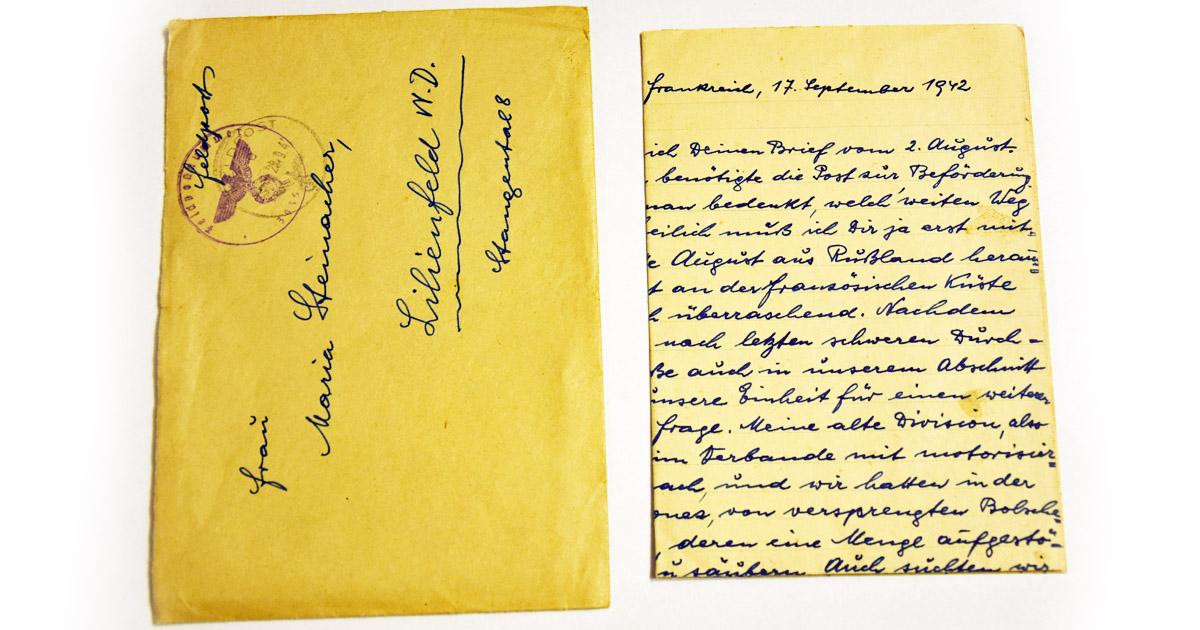 Feldpost
Frau
Maria Steinacher,
Lilienfeld N.D.
Stangental 8
Frankreich, 17. September 1942
ich Deinen Brief vom 2. August
benötigte die Post zur Beförderung
man bedenkt, welch weiten Weg
eilich muß ich Dir ja erst mit=
August aus Rußland heraus
t an der französischen Küste
überraschend. Nachdem
nach letzten schweren Durch=
ße auch in unserem Abschnitt
unsere Einheit für einen weiteren
frage. Meine alte Division, also
im Verbande mit motorisier
ach, und wir hatten in der
ones, von versprengten Bolsche
deren eine Menge aufgestö=
säubern Auch suchten wir